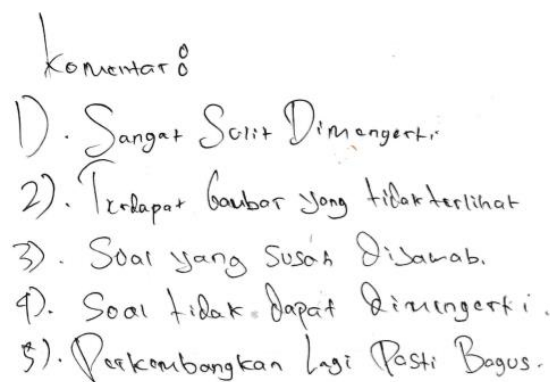 Komentar:
1). Sangat Sulit Dimengerti
2). Terdapat Gambar yang tidak terlihat
3). Soal yang susah Dijawab.
4). Soal tidak dapat Dimengerti.
5). Perkembangkan Lagi Pasti Bagus.